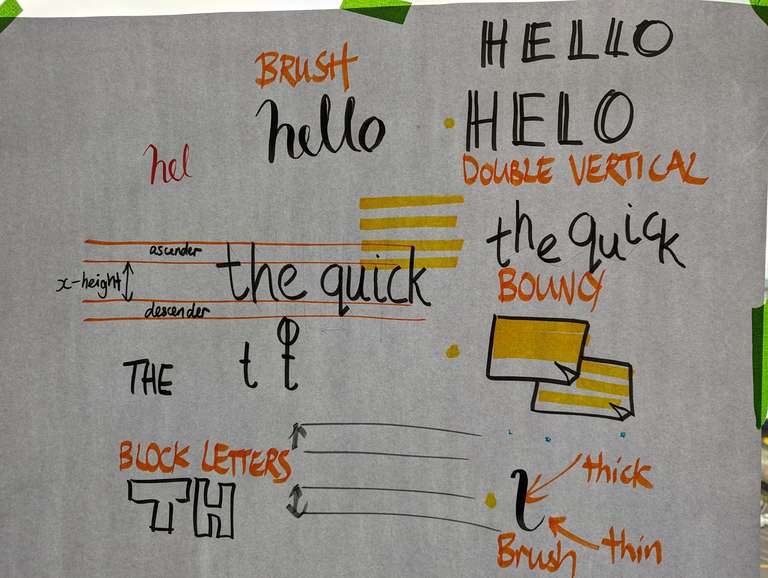 HELLO
BRUSH
hello
HELO
hel
DOUBLE VERTICAL
the quick
ascender
the quick
x-height
BOUNCY
descender
THE
t t
BLOCK LETTERS
thick
TH
l
Brush
thin